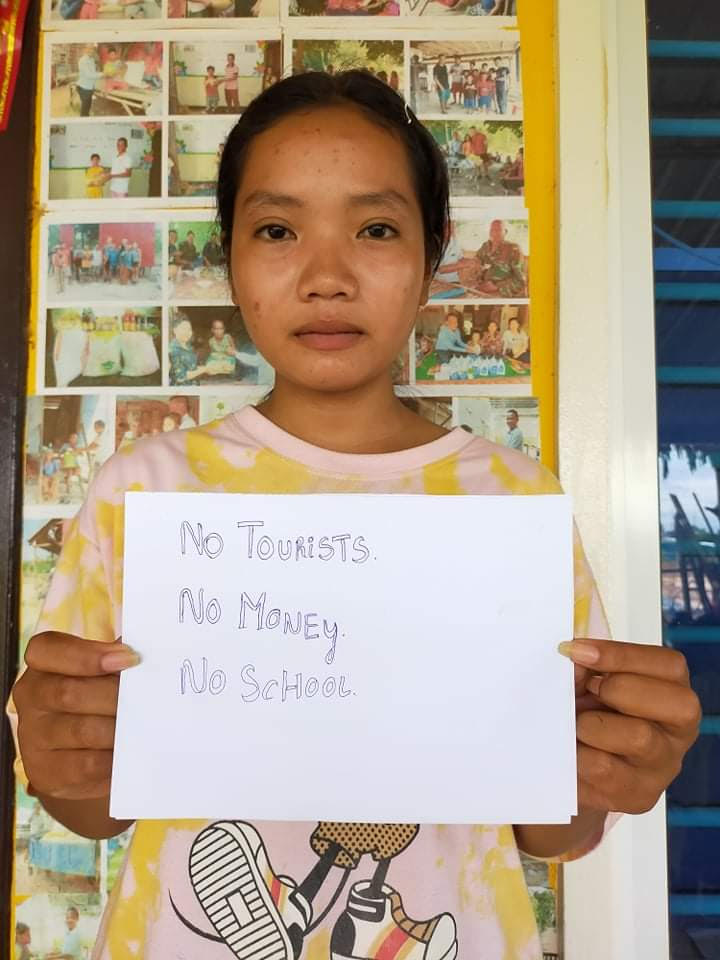 No Tourists.
No Money.
No School.